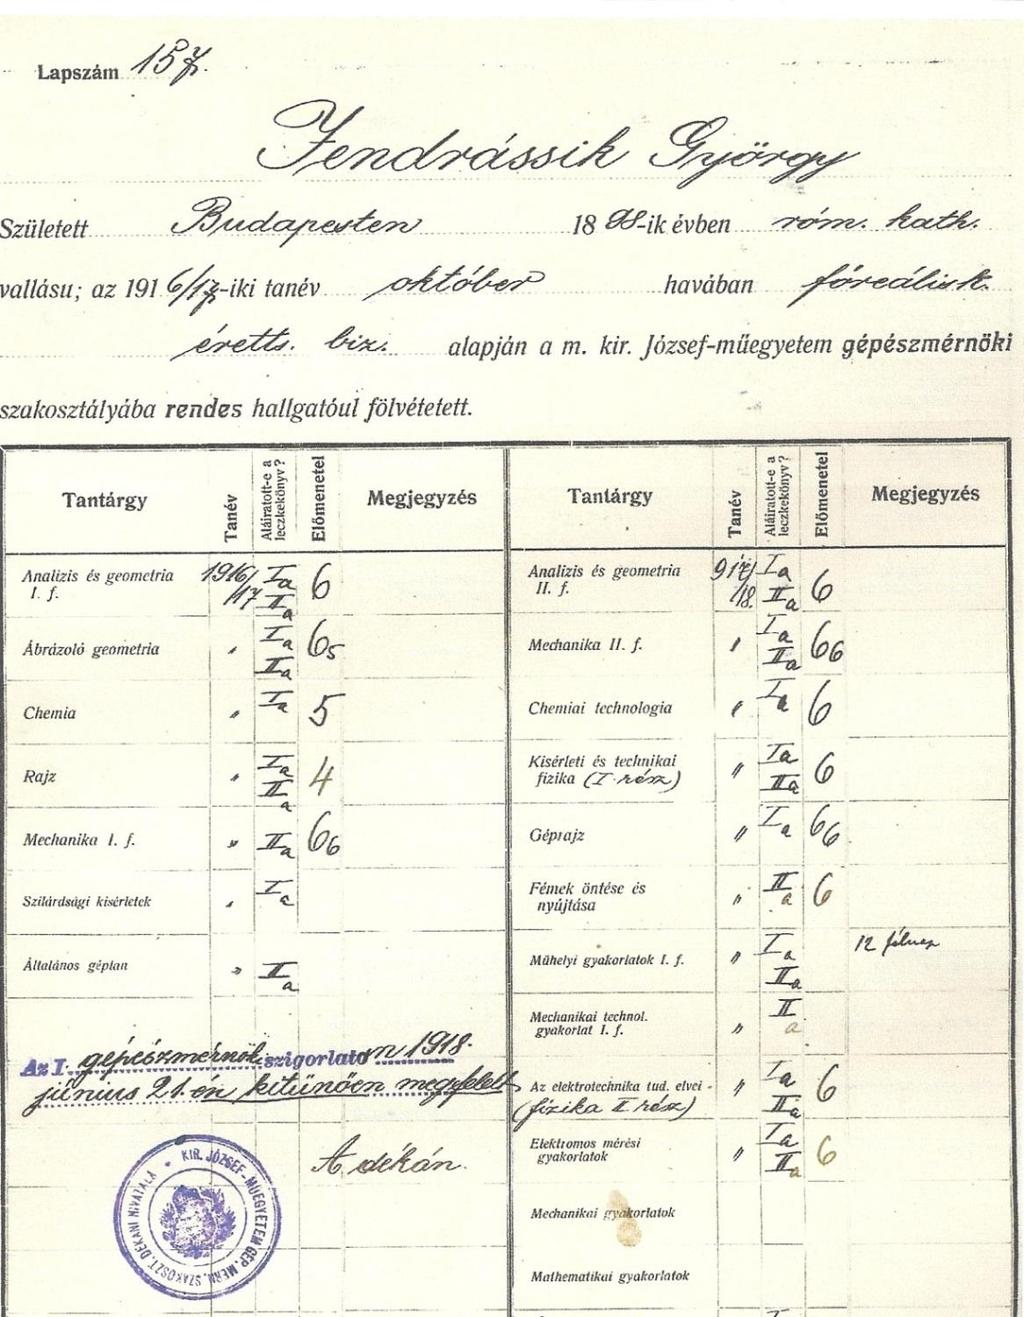 Lapszám 157.
Jendrássik György
Született Budapesten 1898-ik évben róm. kath.
vallásu; az 1916/17-iki tanév október havában főreálisk.
éretts. biz. alapján a m. kir. József-műegyetem gépészmérnöki
szakosztályába rendes hallgatóul fölvétetett.
Tantárgy Tanév Aláiratott-e a leczkekönyv? Előmenetel Megjegyzés
Analizis és geometria I. f. 1916/17 Ia IIa 6
Ábrázoló geometria " Ia IIa 65
Chemia " Ia 5
Rajz " Ia IIa 4
Mechanika I. f. " IIa 66
Szilárdsági kisérletek " Ia
Általános géptan " IIa
Az I. gépészmérnöki szigorlaton 1918.
június 21-én kitünően megfelelt
A dékán.
KIR. JÓZSEF-MŰEGYETEM GÉP. MÉRN. SZAKOSZT. DÉKÁNI HIVATALA
Tantárgy Tanév Aláiratott-e a leczkekönyv? Előmenetel Megjegyzés
Analizis és geometria II. f. 917/18. Ia IIa 6
Mechanika II. f. " Ia IIa 66
Chemiai technologia " Ia 6
Kisérleti és technikai fizika (I. rész) " Ia IIa 6
Géprajz " Ia 66
Fémek öntése és nyújtása " IIa 6
Műhelyi gyakorlatok I. f. " Ia IIa 12 félnap
Mechanikai technol. gyakorlat I. f. " IIa
Az elektrotechnika tud. elvei - (fizika II rész) " Ia IIa 6
Elektromos mérési gyakorlatok " Ia IIa 6
Mechanikai gyakorlatok
Mathematikai gyakorlatok